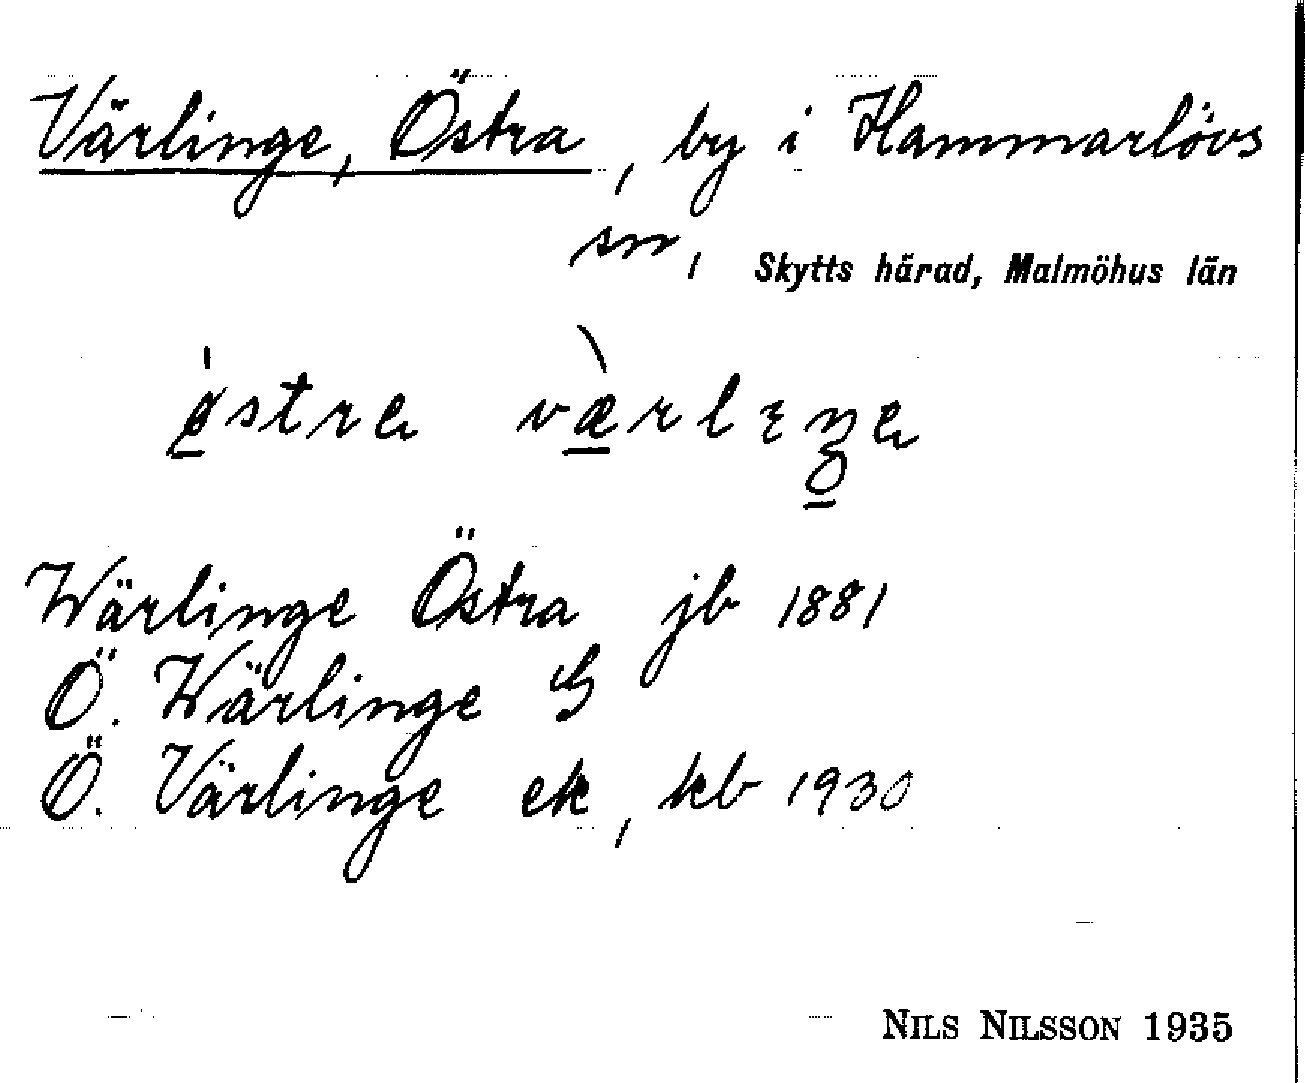 Värlinge, Östra, by i Hammarlövs
sn, Skytts härad, Malmöhus län
Wärlinge Östra jb 1881
Ö. Wärlinge G
Ö. Värlinge ek, kb 1930
NILS NILSSON 1935